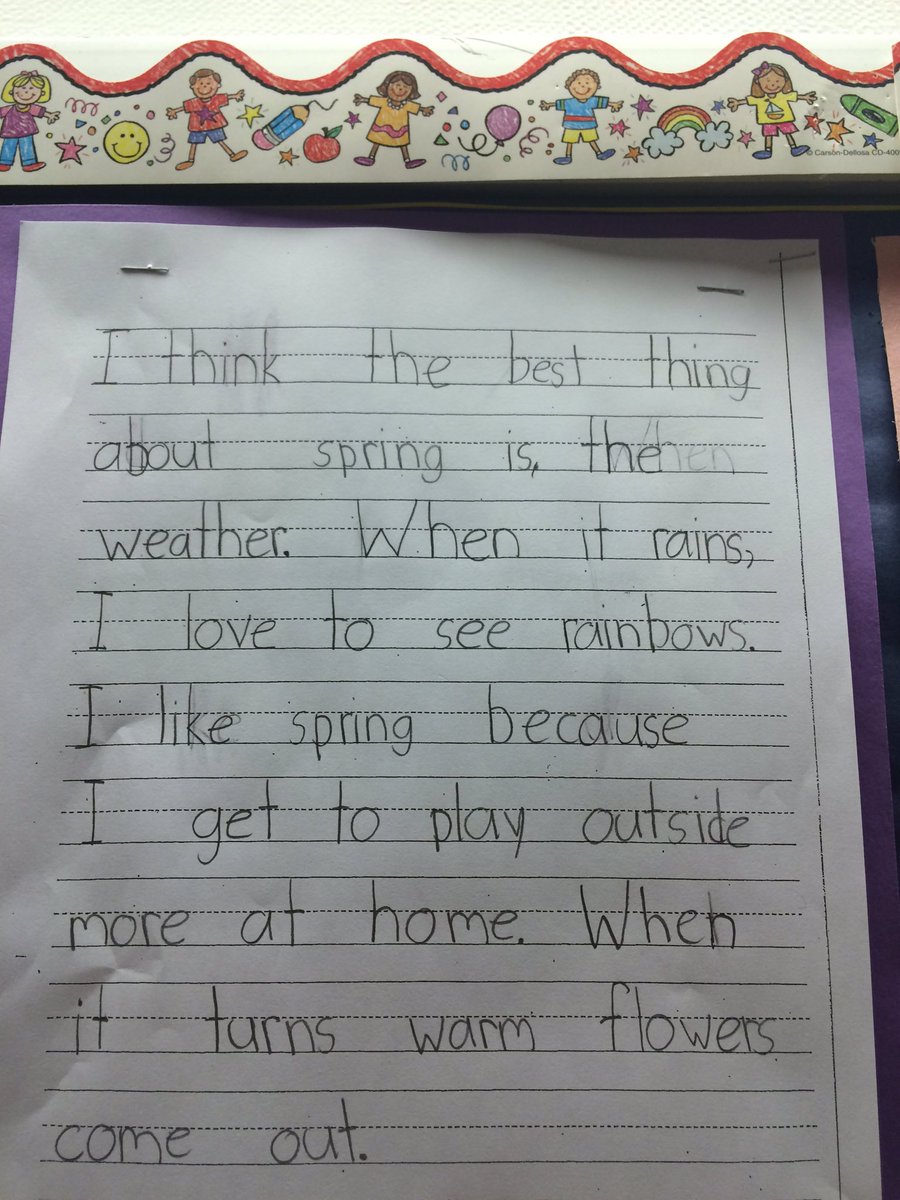 © Carson-Dellosa CD-400
I think the best thing
about spring is, the
weather. When it rains,
I love to see rainbows.
I like spring because
I get to play outside
more at home. When
it turns warm flowers
come out.